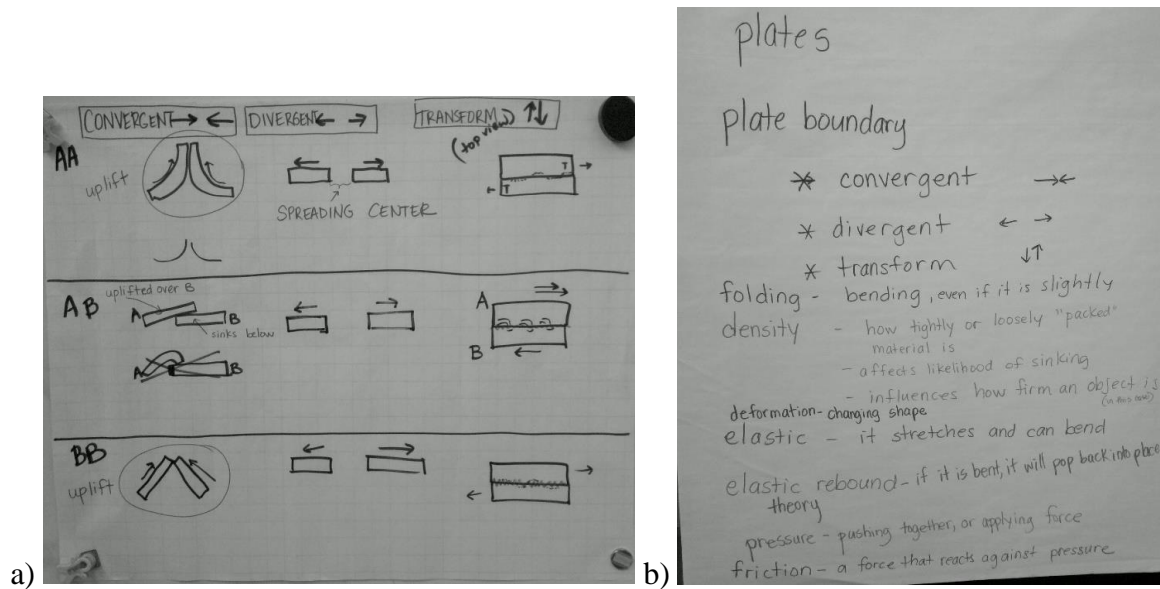 CONVERGENT→ ← DIVERGENT← → TRANSFORM ↑↓
(top view)
AA
uplift
T
T
SPREADING CENTER
AB
uplifted over B
A B
sinks below
A B
A
B
BB
uplift
a)
plates
plate boundary
* convergent →←
* divergent ← →
* transform ↓↑
folding - bending, even if it is slightly
density - how tightly or loosely "packed"
material is
- affects likelihood of sinking
- influences how firm an object is
deformation - changing shape
elastic - it stretches and can bend
elastic rebound - if it is bent, it will pop back into place
theory
pressure - pushing together, or applying force
friction - a force that reacts against pressure
b)